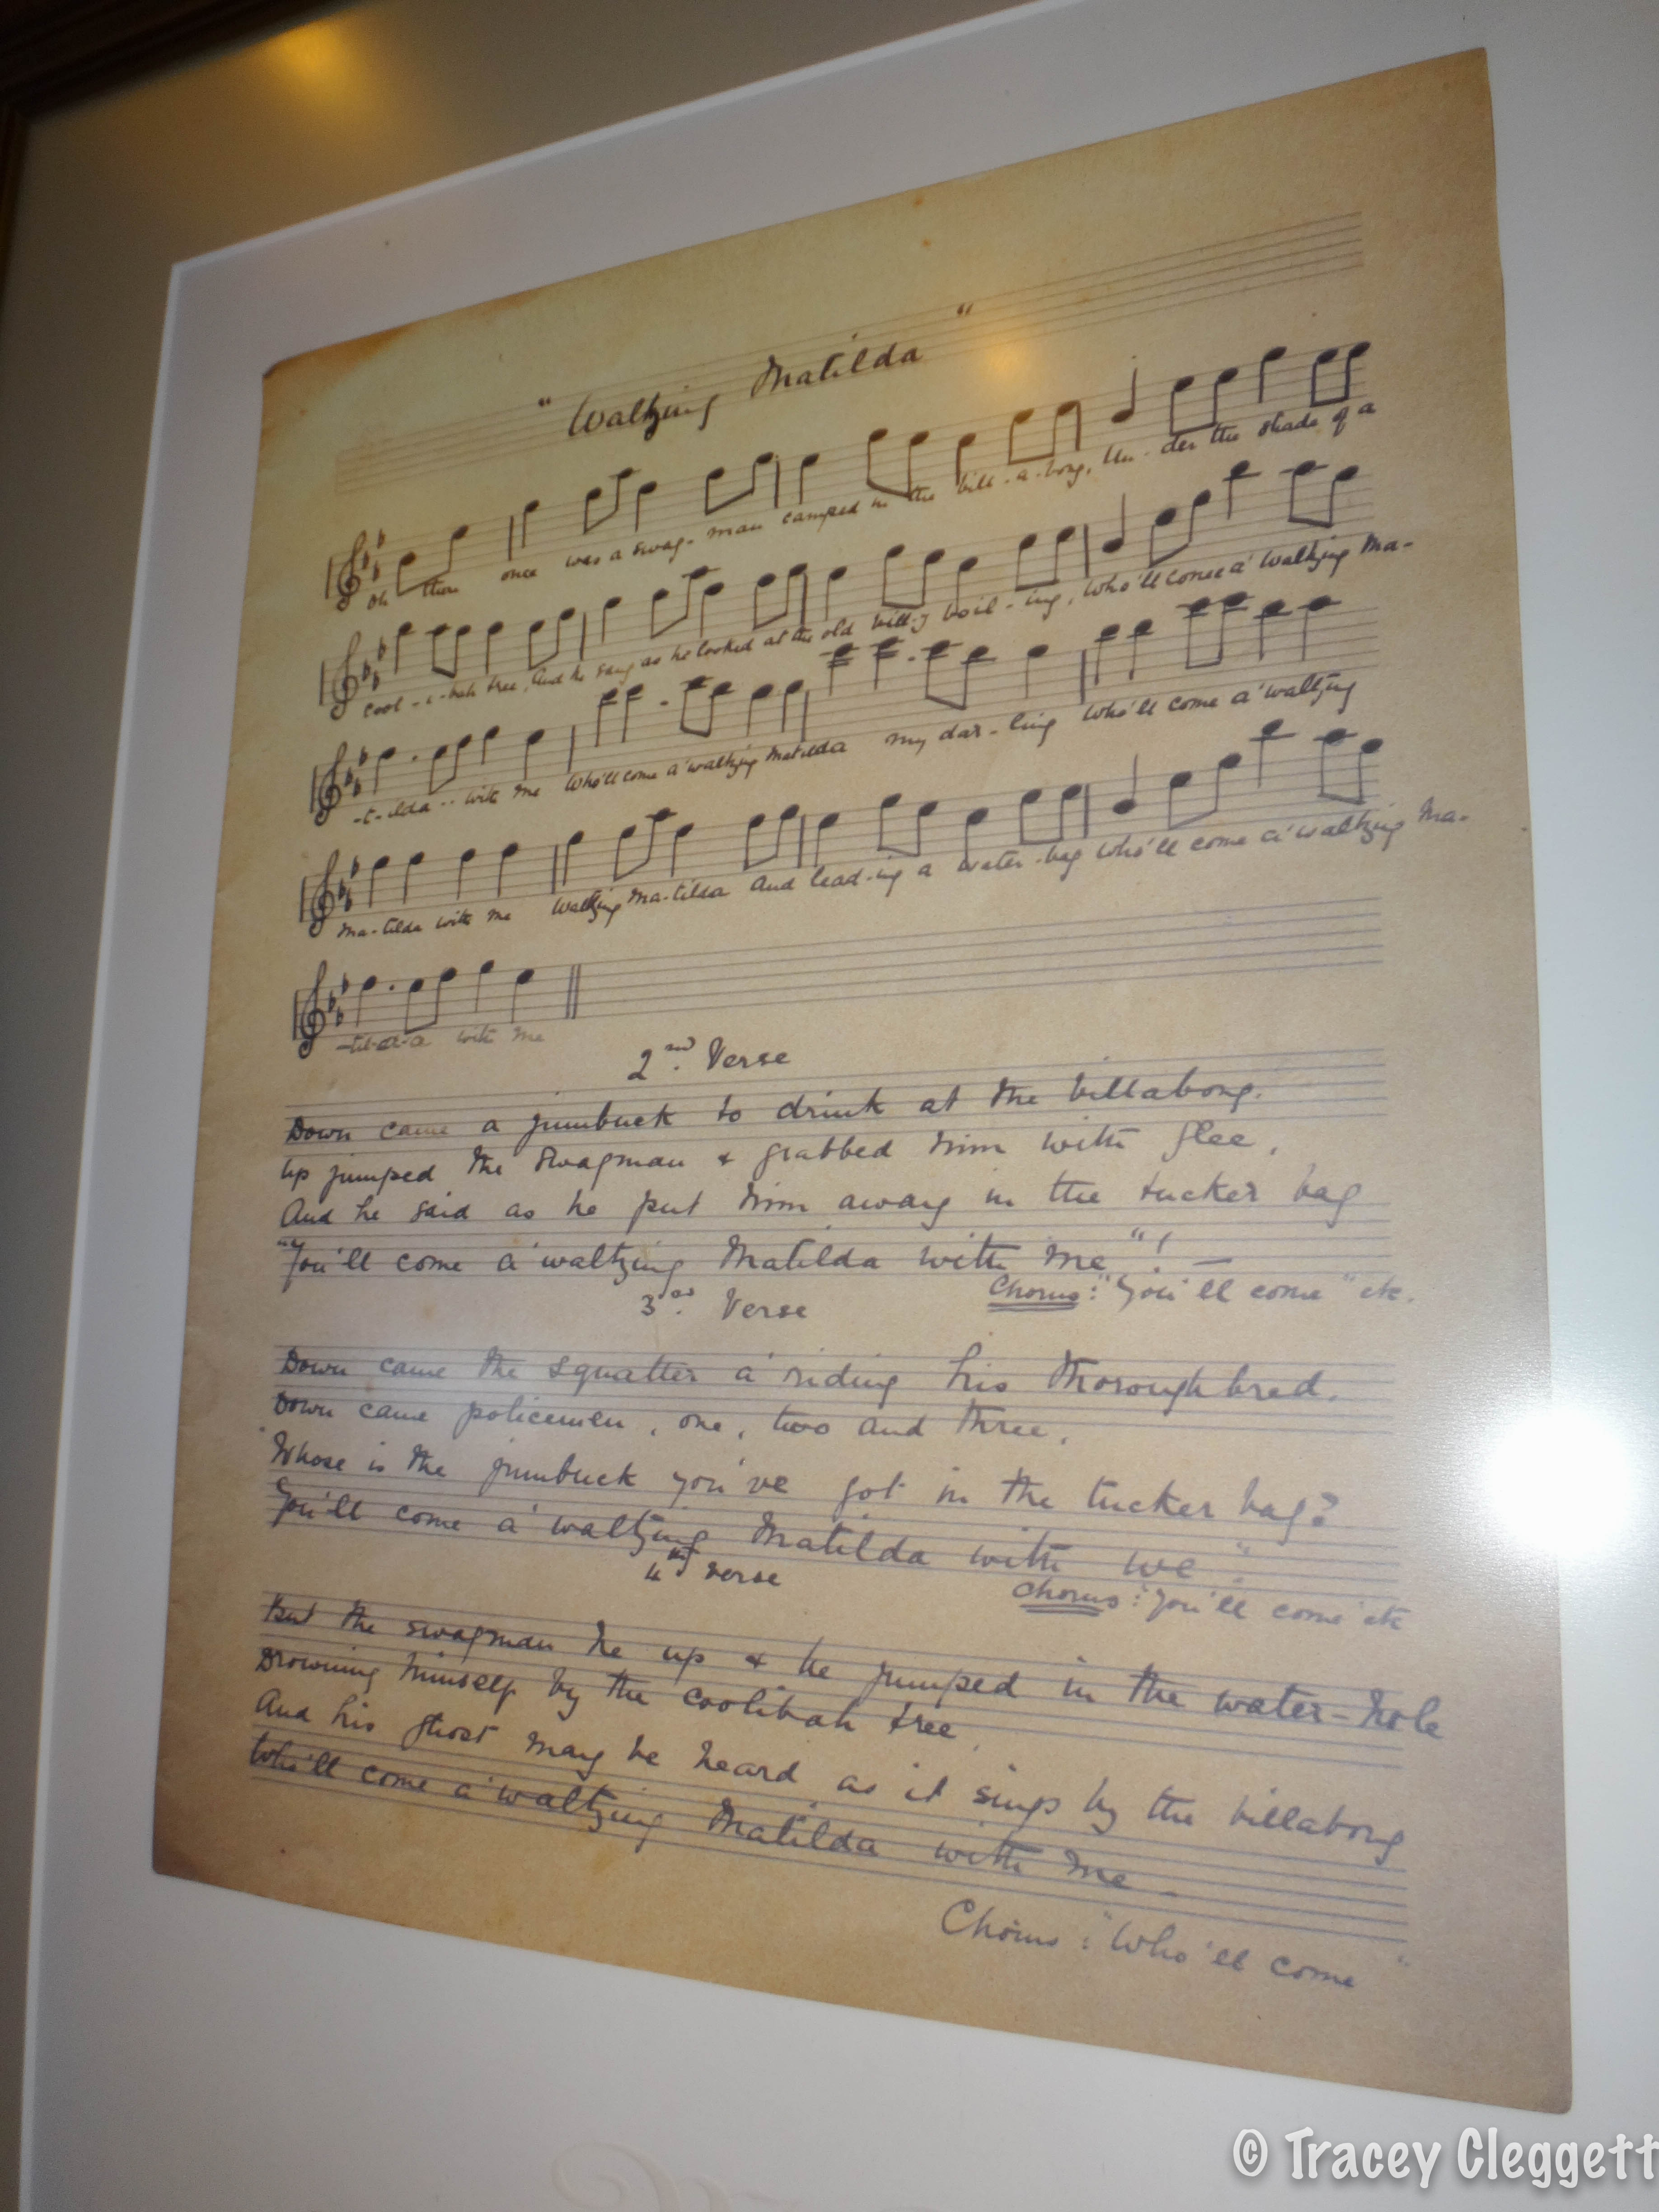 "Waltzing Matilda"
Oh there once was a swag- man camped in the bill-a-bong, Un-der the shade of a
Cool-i-bah tree, And he sang as he looked at the old bill-y boil-ing, Who'll come a' waltzing Ma-
-t-ilda-- with me Who'll come a' waltzing Matilda my dar-ling Who'll come a' waltzing
Ma-tilda with me Waltzing Ma-tilda And lead-ing a water-bag Who'll come a' waltzing Ma-
-til-d-a with me
2nd. Verse
Down came a jumbuck to drink at the billabong.
Up jumped the swagman & grabbed him with glee,
And he said as he put him away in the tucker bag
"You'll come a' waltzing Matilda with me"! —
Chorus: "You'll come" etc.
3rd. Verse
Down came the squatter a' riding his thoroughbred.
Down came policemen, one, two and three,
"Whose is the jumbuck you've got in the tucker bag?
You'll come a' waltzing Matilda with we."
Chorus: "You'll come" etc
4th Verse
But the swagman he up & he jumped in the water-hole
Drowning himself by the coolibah tree,
And his ghost may be heard as it sings by the billabong
Who'll come a' waltzing Matilda with me -
Chorus: "Who'll come"
© Tracey Cleggett